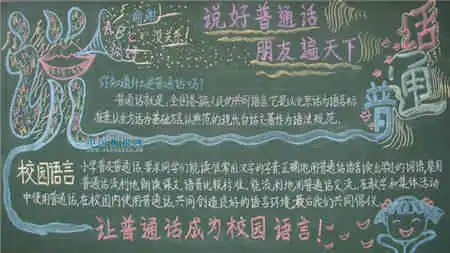 说
ABC
没关系!
说好普通话
朋友遍天下
普通话
你知道什么是普通话吗?
普通话就是,全国各族人民的共同语言,它是以北京话为语言标
准音,以北方话为基础方言,以典范的现代白话文著作为语法规范.
校园语言
小学普及普通话,要求同学们能读准常用汉字的字音,正确地用普通话说
普通话流利地朗读课文,语音比较标准,能流利地用普通话交流,在教学和集体活动
中使用普通话,在校园内使用普通话,共同创造良好的语言环境,最后我们共同倡议,
让普通话成为校园语言!